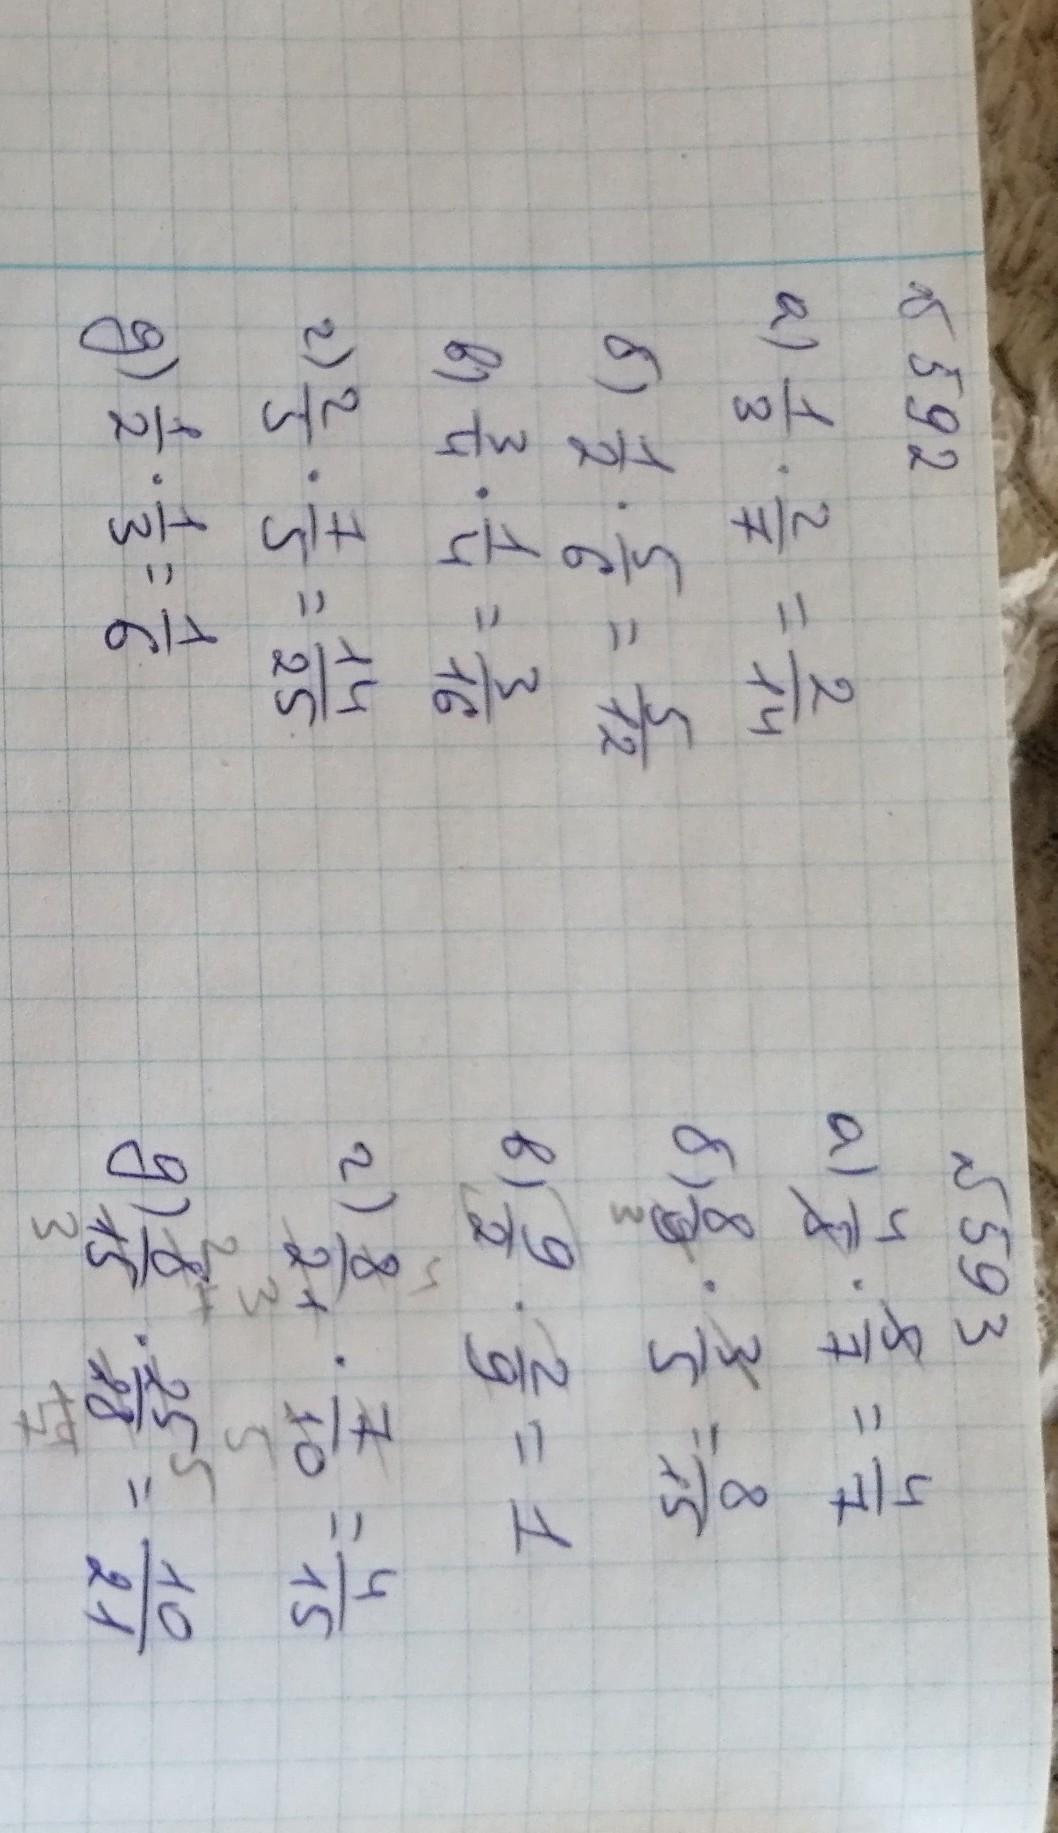 № 592
а) 1/3 · 2/7 = 2/14
б) 1/2 · 5/6 = 5/12
в) 3/4 · 1/4 = 3/16
г) 2/5 · 7/5 = 14/25
д) 1/2 · 1/3 = 1/6
№ 593
а) 4/8 · 8/7 = 4/7
б) 8/9 · 3/5 = 8/15
3
в) 9/2 · 2/9 = 1
4
г) 8/21 · 7/10 = 4/15
3 5
2 5
д) 8/15 · 25/28 = 10/21
3 7